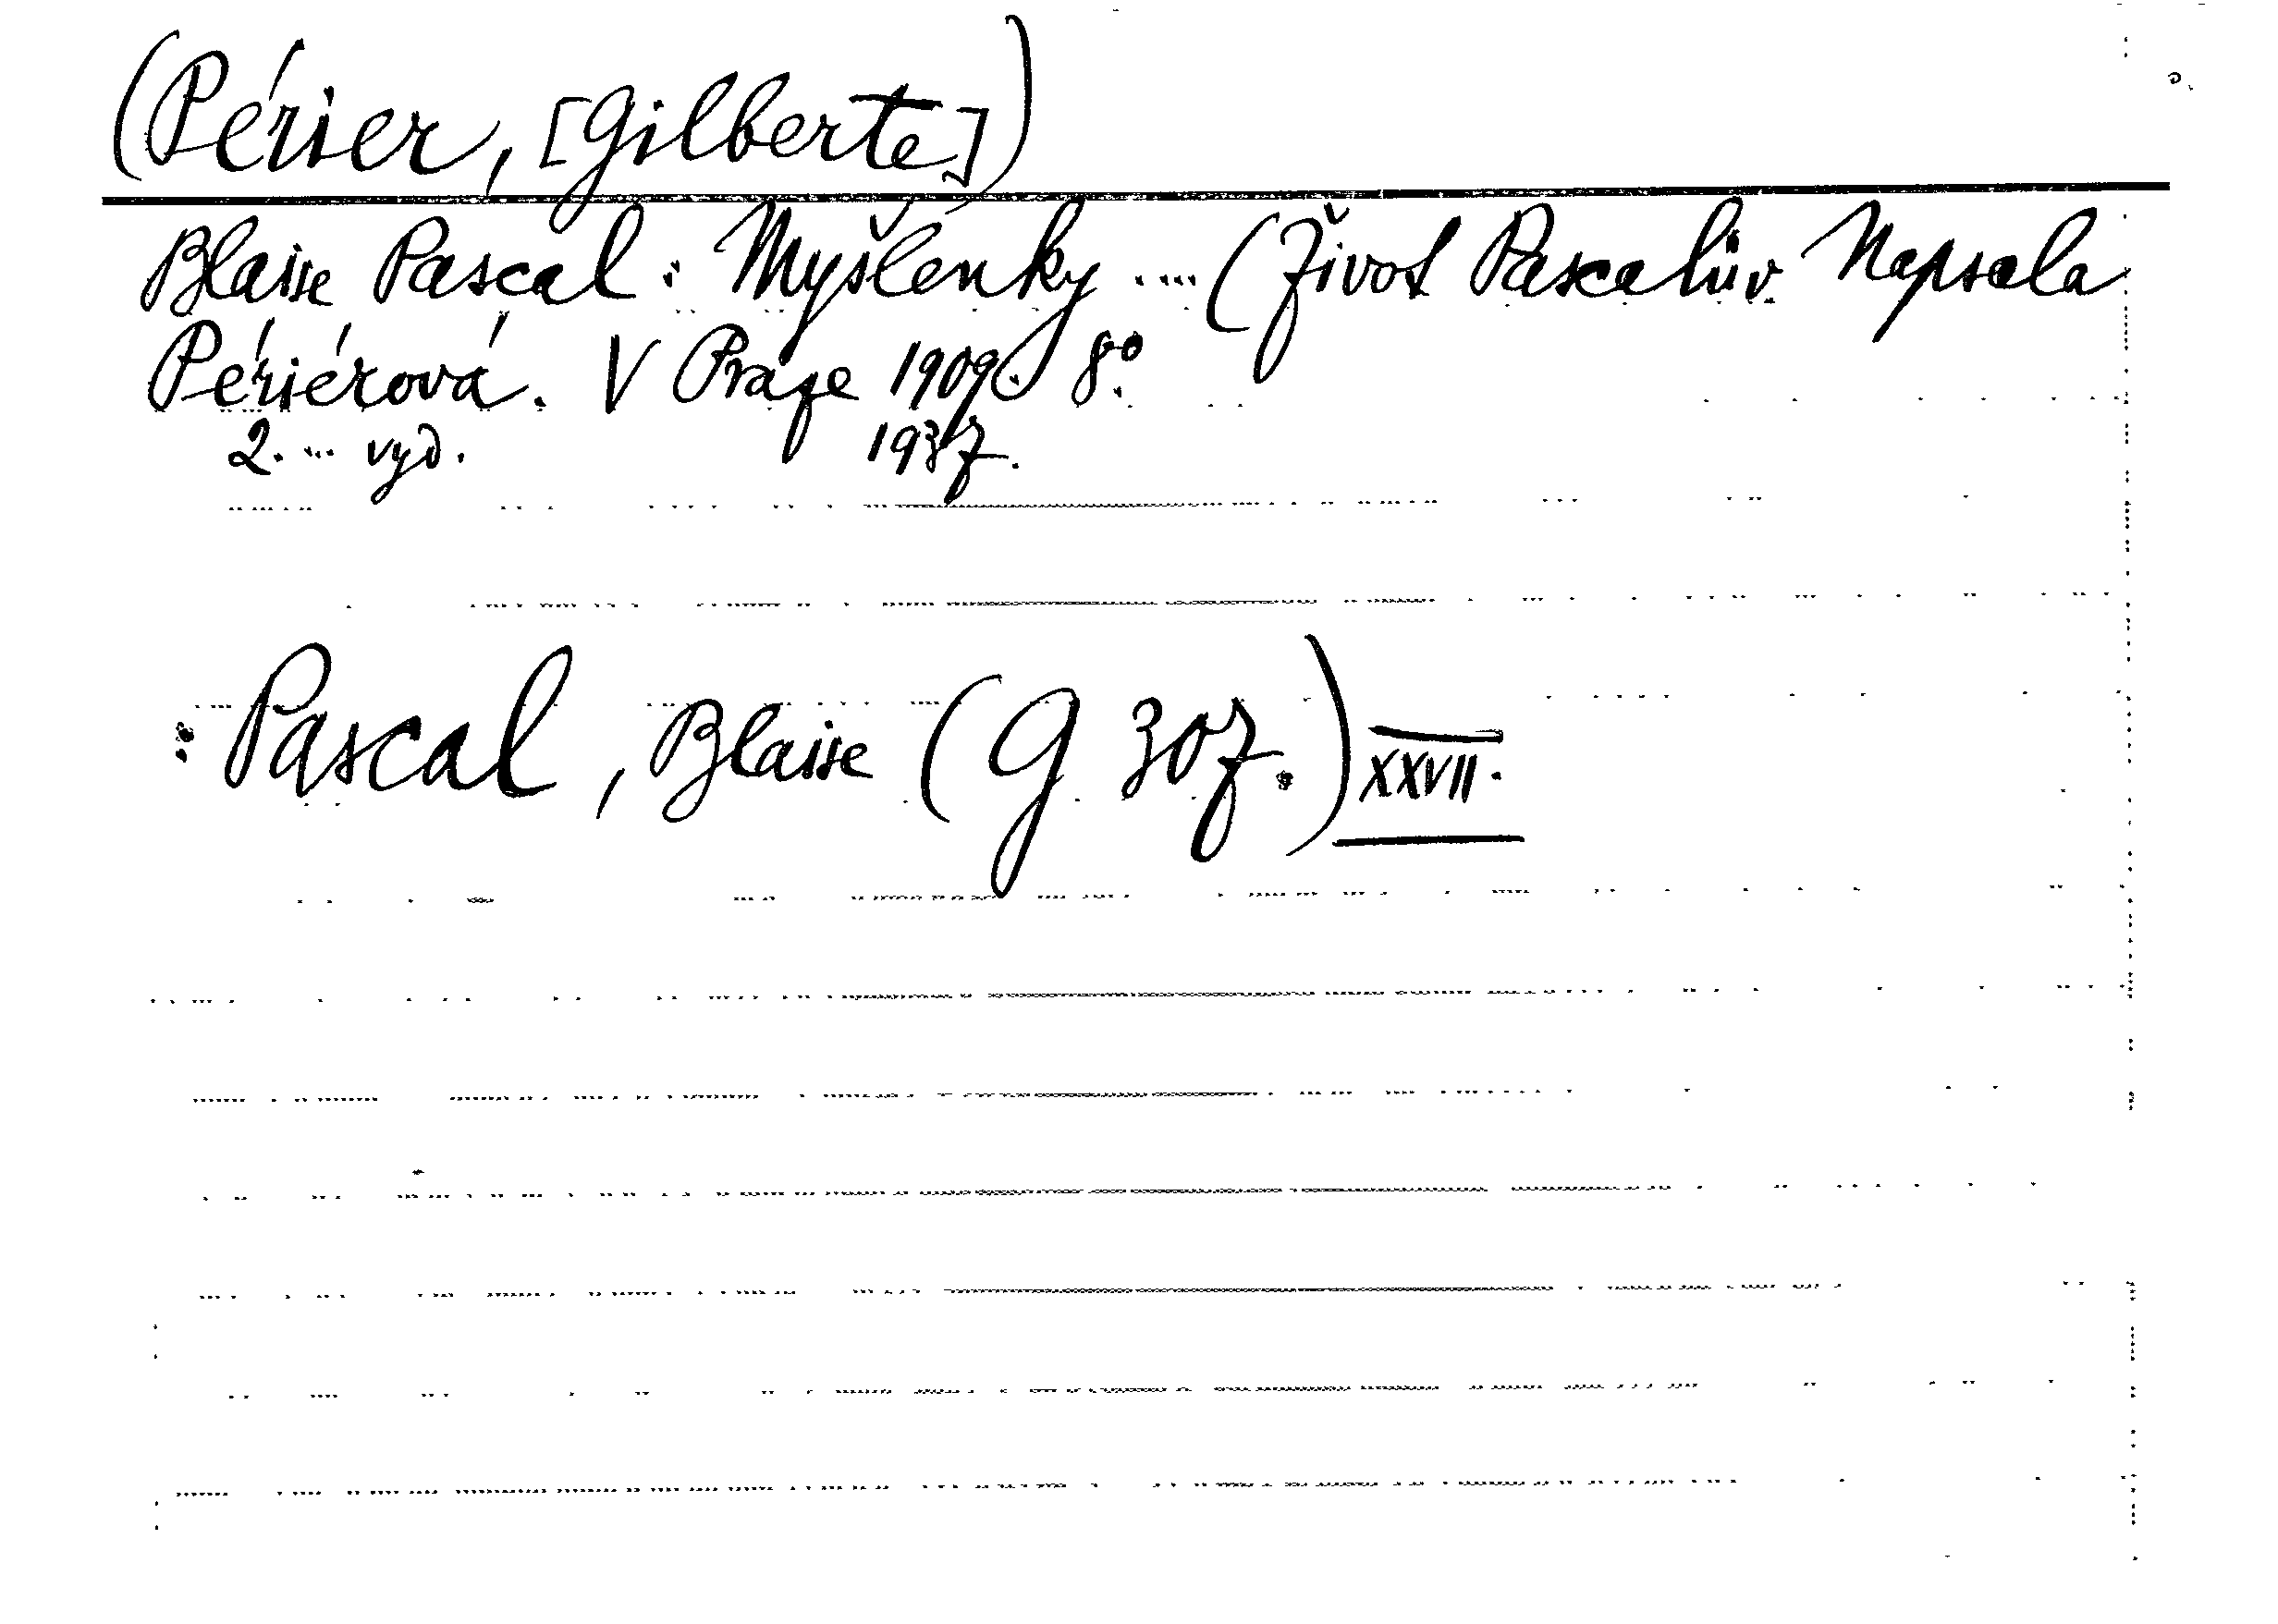 (Périer, [Gilberte])
Blaise Pascal: Myšlénky .... (Život Pascalův. Napsala
Périérová. V Praze 1909. 8°.
2. ... vyd. 1937.
: Pascal, Blaise (G 307.) XXVII.